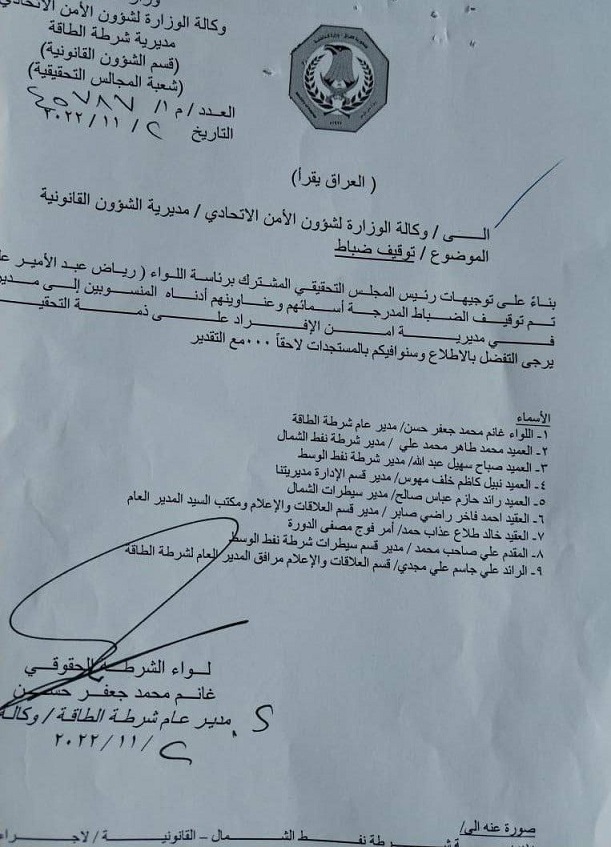 وكالة الوزارة لشؤون الأمن الاتحادي
مديرية شرطة الطاقة
(قسم الشؤون القانونية)
(شعبة المجالس التحقيقية)
العـدد / م ١/ ٤٥٧٨٧
التاريخ ٢ / ١١ / ٢٠٢٢
( العراق يقرأ)
الـــى / وكالة الوزارة لشؤون الأمن الاتحادي / مديرية الشؤون القانونية
الموضوع / توقيف ضباط
بناءً على توجيهات رئيس المجلس التحقيقي المشترك برئاسة اللواء ( رياض عبد الأمير
تـم توقيف الضباط المدرجة أسمائهم وعناوينهم أدناه المنسوبين إلى
فـــي مديريـــة امـــن الإفـــراد علـــى ذمـــة
يرجى التفضل بالاطلاع وسنوافيكم بالمستجدات لاحقاً ٠٠٠مع التقدير
الأسماء
١- اللواء غانم محمد جعفر حسن/ مدير عام شرطة الطاقة
٢- العميد محمد طاهر محمد علي / مدير شرطة نفط الشمال
٣- العميد صباح سهيل عبد الله/ مدير شرطة نفط الوسط
٤- العميد نبيل كاظم خلف مهوس/ مدير قسم الإدارة مديريتنا
٥- العميد رائد حازم عباس صالح/ مدير سيطرات الشمال
٦- العقيد احمد فاخر راضي صابر / مدير قسم العلاقات والإعلام ومكتب السيد المدير العام
٧- العقيد خالد طلاع عذاب حمد/ أمر فوج مصفى الدورة
٨- المقدم علي صاحب محمد / مدير قسم سيطرات شرطة نفط الوسط
٩- الرائد علي جاسم علي مجدي/ قسم العلاقات والإعلام مرافق المدير العام لشرطة الطاقة
لـواء الشرطـة الحقوقي
غانـم محمد جعفـر حسـين
مدير عام شرطة الطاقة / وكالة
٢ / ١١ / ٢٠٢٢
صورة عنه الى/
شـرطة نفـط الشـمال – القانونيـة / لاجـراء